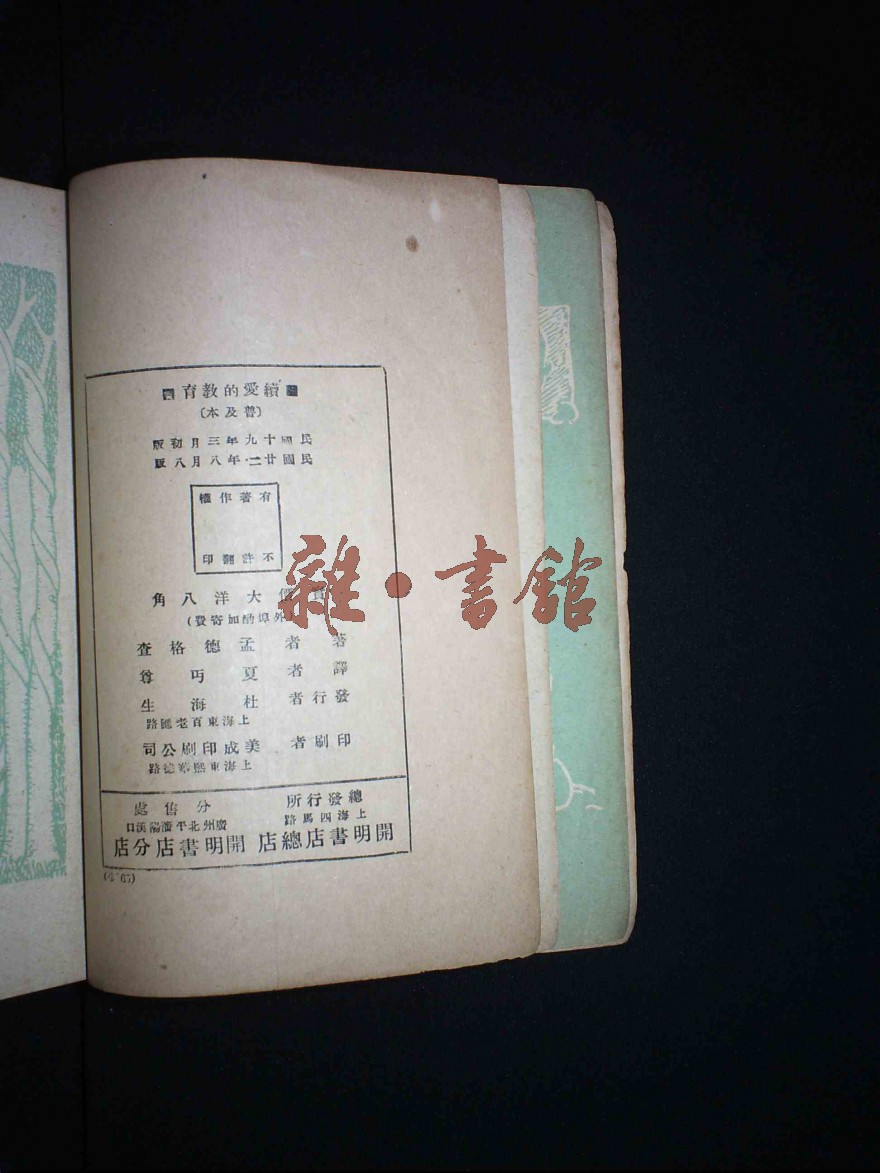 續愛的教育
(普及本)
民國十九年三月初版
民國廿二年八月八版
有著作權
不許翻印
實價大洋八角
(外埠酌加寄費)
著者 孟德格查
譯者 夏丏尊
發行者 杜海生
上海東百老匯路
印刷者 美成印刷公司
上海東熙華德路
總發行所 上海四馬路 開明書店總店
分售處 廣州北平瀋陽漢口 開明書店分店
雜·書館